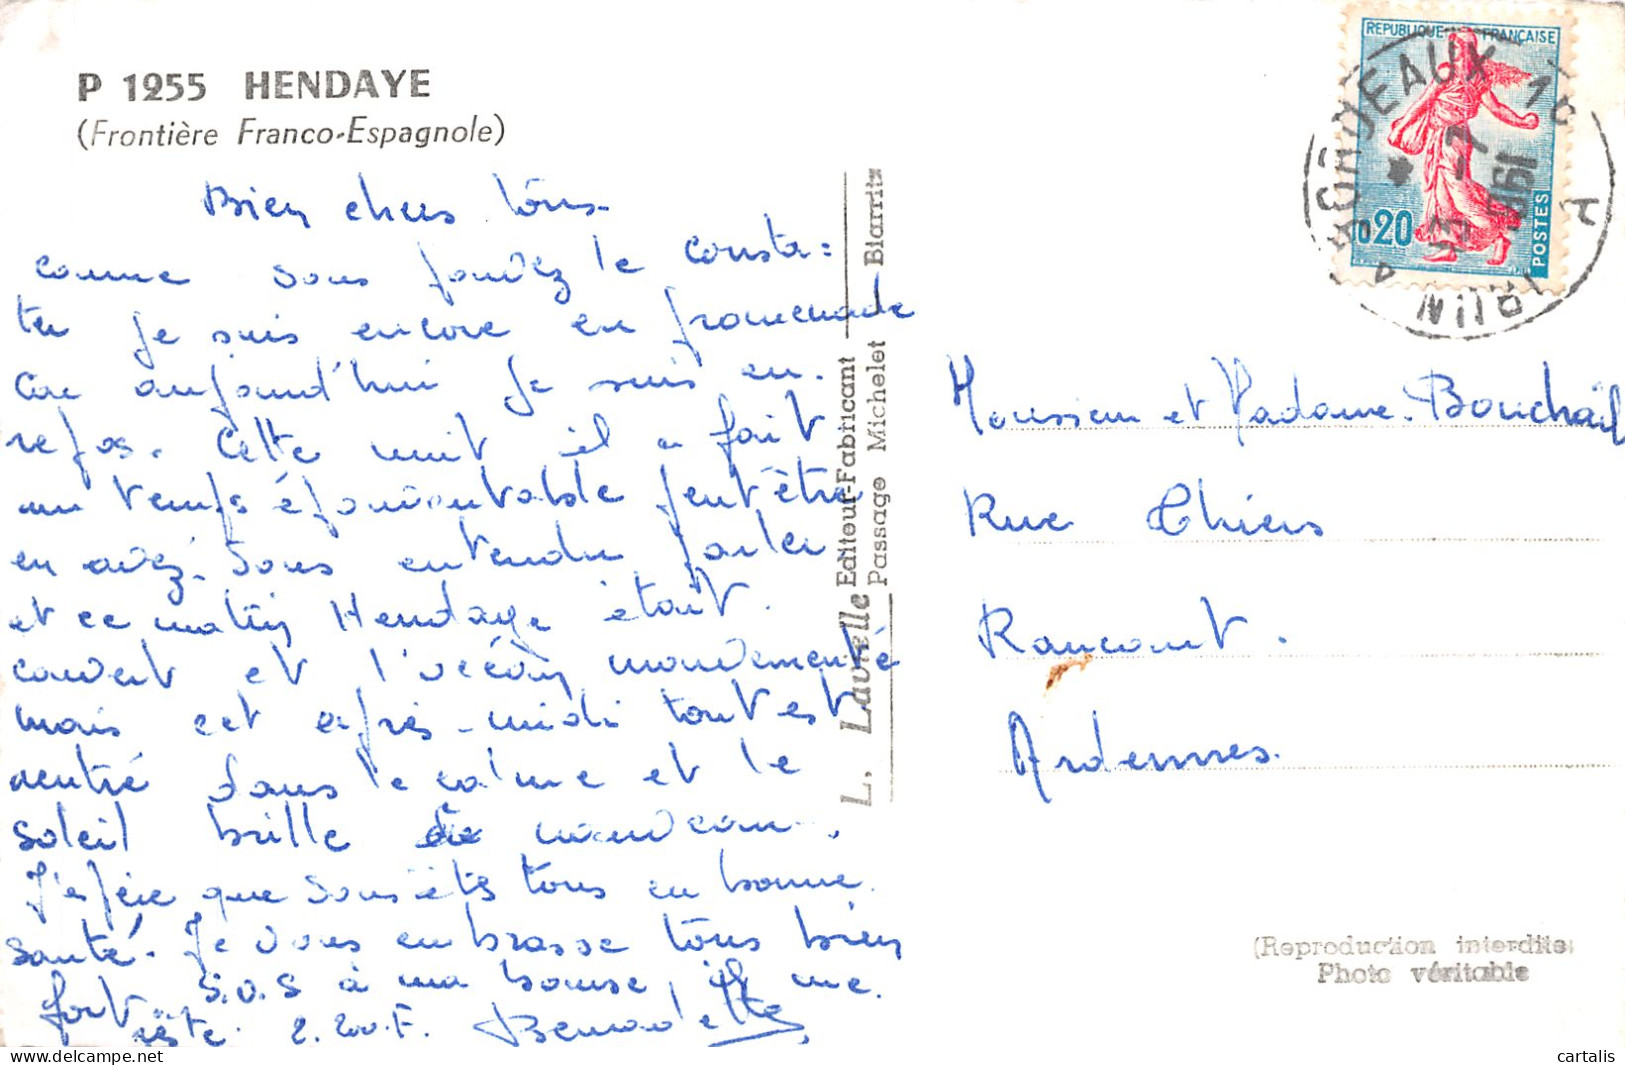 P 1255 HENDAYE
(Frontière Franco-Espagnole)
Bien chers tous
comme vous pouvez le consta=
ter je suis encore en promenade
car aujourd'hui je suis en
repos. Cette nuit il a fait
un temps épouventable peut être
en avez. vous entendu parler
et ce matin Hendaye était
couvert et l'océan mouvementé
mais cet après-midi tout est
rentré dans le calme et le
soleil brille de nouveau.
J'espère que vous êtes tous en bonne
santé. Je vous embrasse tous bien
fort. S.O.S à ma bourse, il me
reste 2.200.F. Bernadette
L. Lavielle Editeur-Fabricant
Passage Michelet Biarritz
REPUBLIQUE FRANÇAISE
0,20
POSTES
BORDEAUX
13 -7
1961
Monsieur et Madame. Bouchail
Rue Thiers
Raucourt.
Ardennes.
(Reproduction interdite)
Photo véritable
cartalis